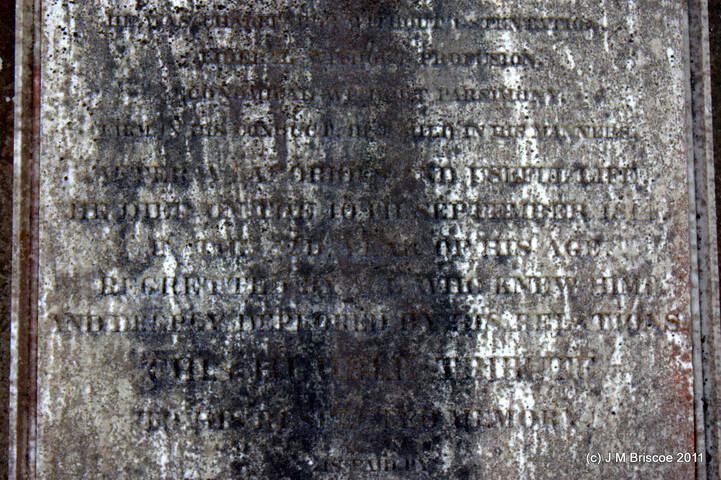 HE WAS CHARITABLE WITHOUT OSTENTATION,
LIBERAL WITHOUT PROFUSION,
ECONOMICAL WITHOUT PARSIMONY,
FIRM IN HIS CONDUCT, BUT MILD IN HIS MANNERS,
AFTER A LABORIOUS AND USEFUL LIFE,
HE DIED ON THE 10TH SEPTEMBER
IN THE YEAR OF HIS AGE,
REGRETTED BY ALL WHO KNEW HIM
AND DEEPLY DEPLORED BY HIS RELATIONS.
THIS HUMBLE TRIBUTE
TO HIS RESPECTED MEMORY,
IS PAID BY
(c) J M Briscoe 2011